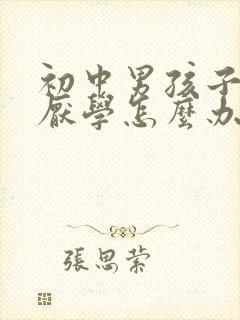 初中男孩子
厭學怎麼办
張思萦